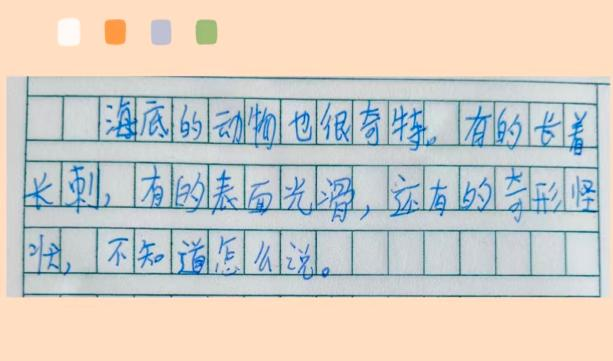 海底的动物也很奇特。有的长着
长刺，有的表面光滑，还有的奇形怪
状，不知道怎么说。